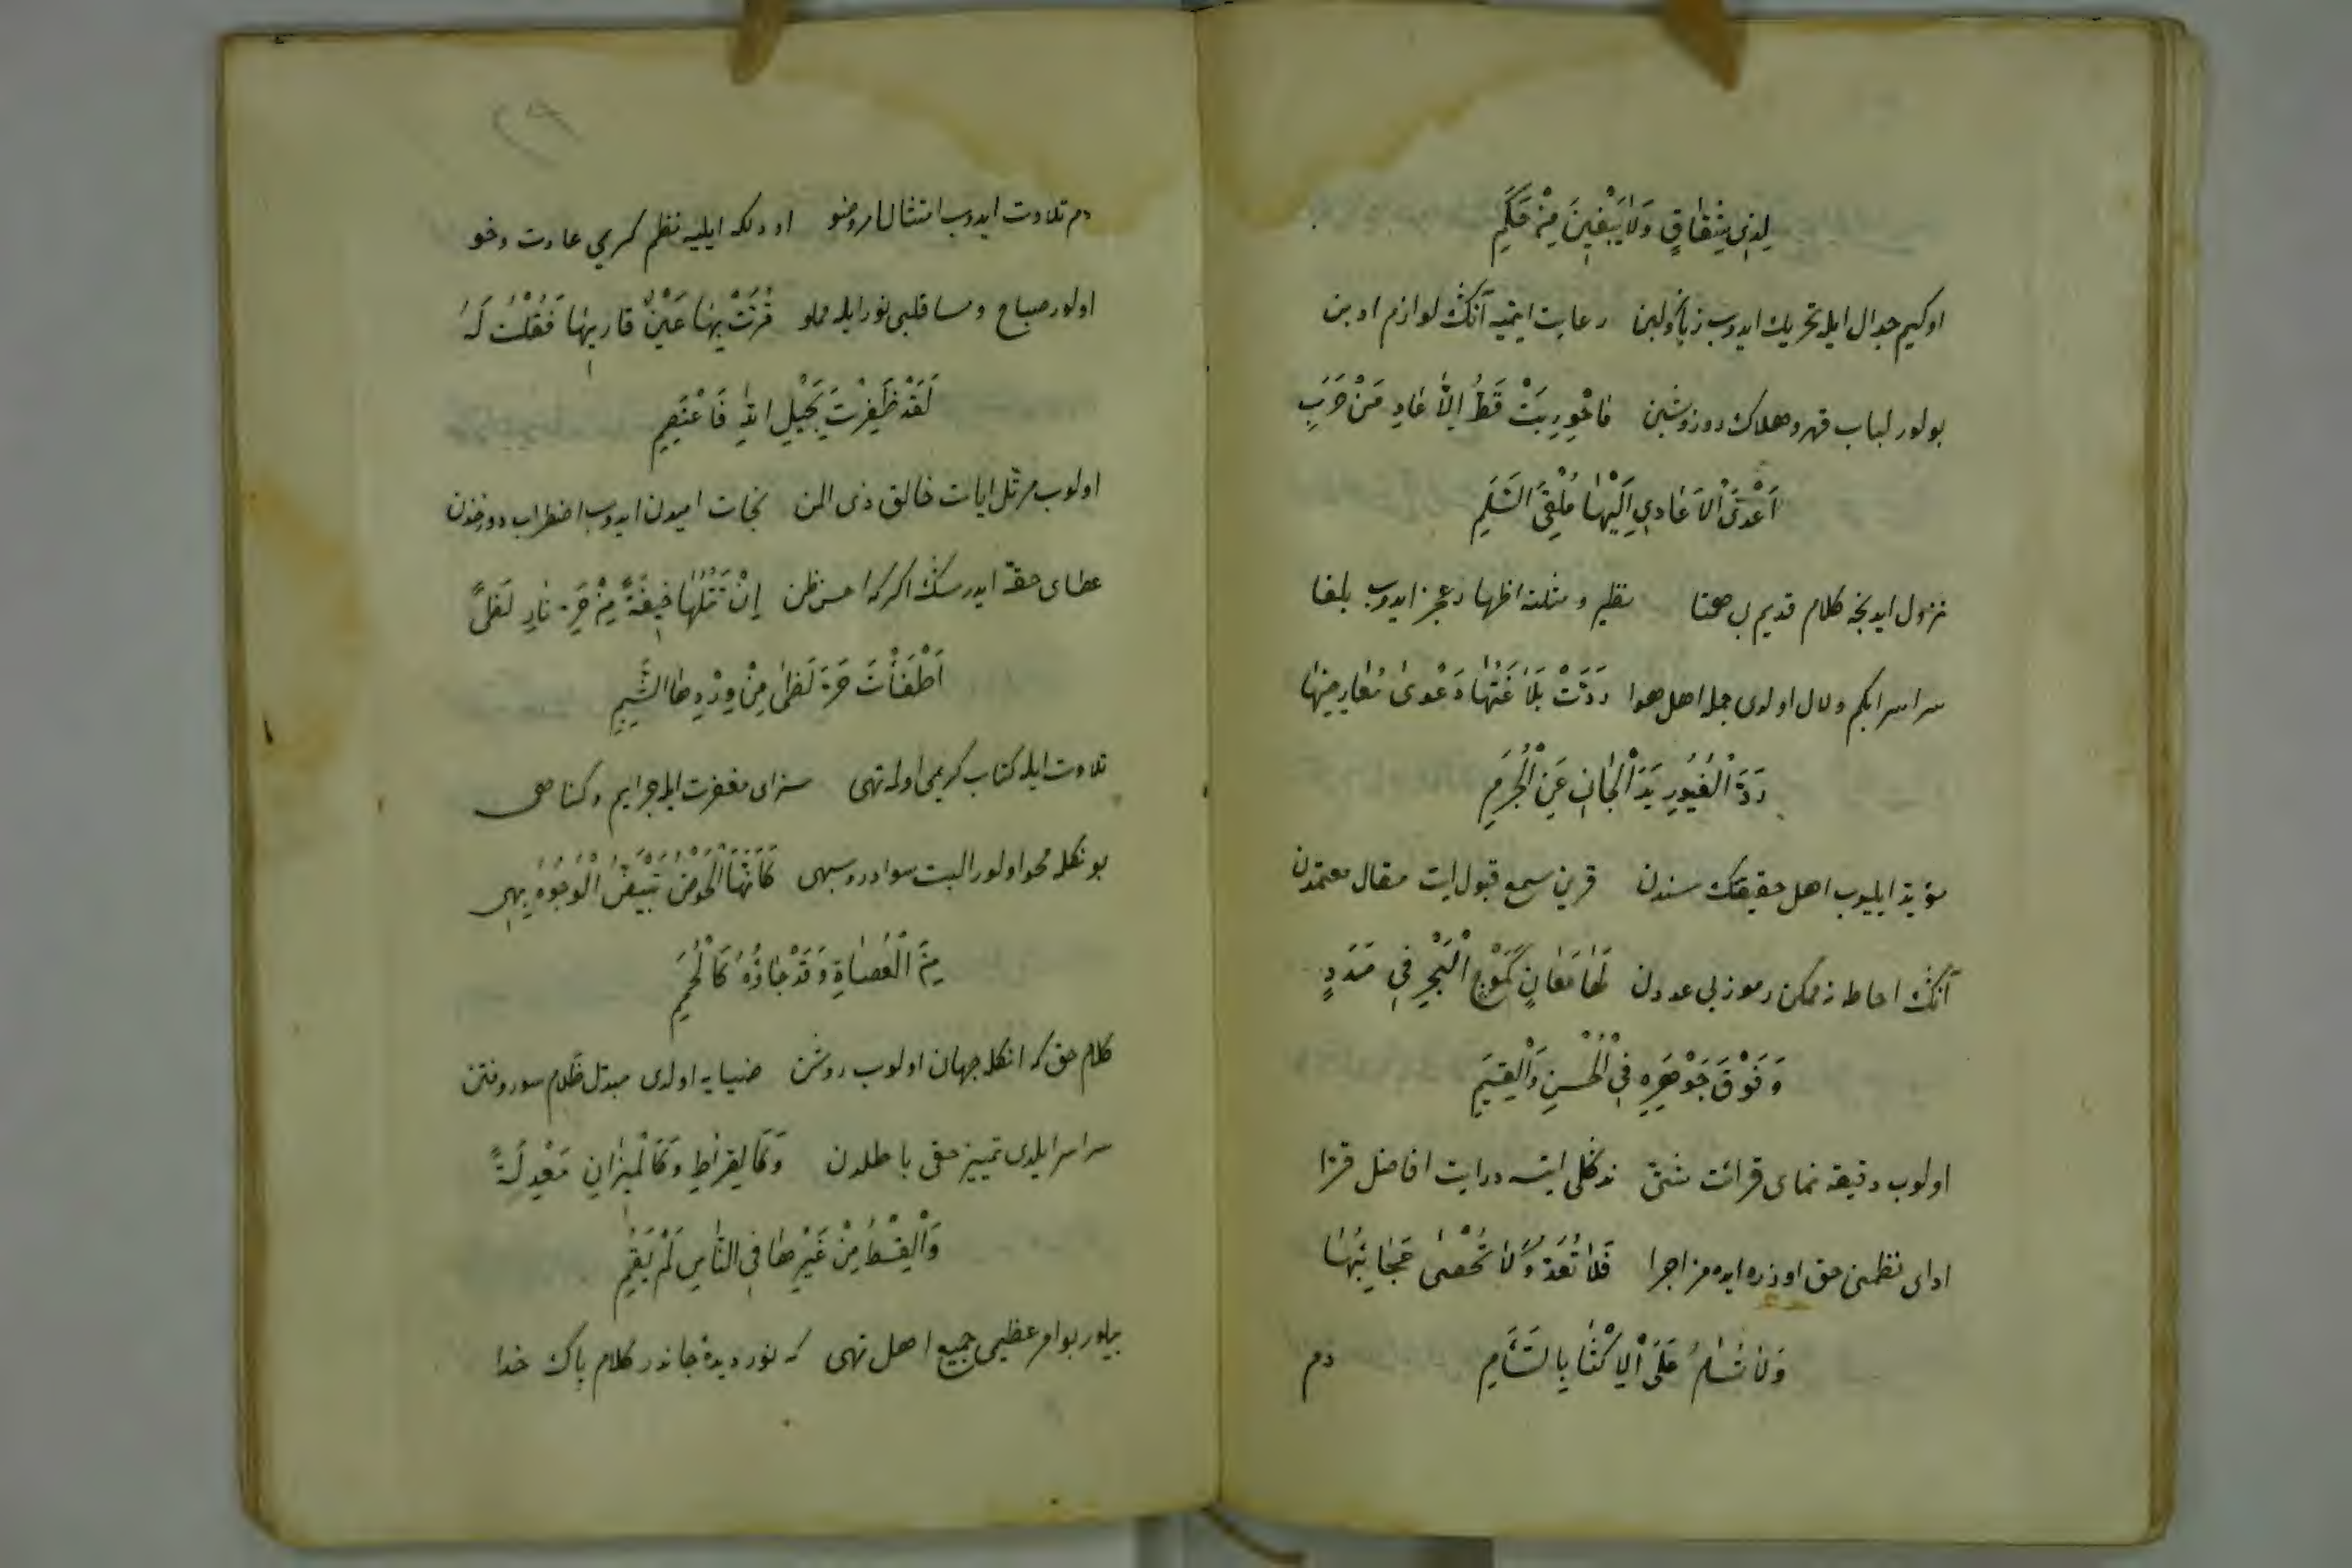 لِذِي شِقَاقٍ وَلَا يَبْغِينَ مِنْ حَكَمِ
اوكيم جدال ايله تحريك ايدوب زبانولبن رعايت ايتميه آنڭ لوازم ادبن
بولور لباب قهر وهلاك دوزوشبن مَا حُورِبَتْ قَطُّ إِلَّا عَادِ مَنْ حَرَبِ
اَعْدَى الْاَعَادِي اِلَيْهَا مُلْقِيَ السَّلَمِ
نزول ايدنجه كلام قديم بى همتا نظير و مثلنه اظهار عجز ايدوب بلغا
سراسر ابكم ولال اولدى جمله اهل هوا رَدَّتْ بَلَاغَتُهَا دَعْوَى مُعَارِضِهَا
رَدَّ الْغَيُورِ يَدَ الْجَانِي عَنِ الْحُرَمِ
مؤيد ايليوب اهل حقيقتڭ سندن قرين سمع قبول ايت مقال معتمدن
آنڭ احاطه نه ممكن رموز بى عددن لَهَا مَعَانٍ كَمَوْجِ الْبَحْرِ فِي مَدَدٍ
وَفَوْقَ جَوْهَرِهِ فِي الْحُسْنِ وَالْقِيَمِ
اولوب دقيقه نماى قرائت شتى نه ڭلى ايتسه درايت افاضل قرّا
اداى نظمنى حق اوزره ايده مز اجرا فَلَا تُعَدُّ وَلَا تُحْصَى عَجَائِبُهَا
وَلَا تُسَامُ عَلَى الْاِكْثَارِ بِالسَّأَمِ دم
دم تلاوت ايدوب امتثال امر وضو اودلكه ايليه نظم كريمى عادت وخو
اولور صباح ومسا قلبى نور ايله مملو قَرَّتْ بِهَا عَيْنُ قَارِيهَا فَقُلْتُ لَهُ
لَقَدْ ظَفِرْتَ بِحَبْلِ اللّٰهِ فَاعْتَصِمِ
اولوب مرتل ايات خالق ذى المن نجات اميدن ايدوب اضطراب دوزخدن
عطاى حقه ايدرسڭ اكركه احسن ظن إِنْ تَتْلُهَا خِيفَةً مِنْ حَرِّ نَارِ لَظًى
اَطْفَأْتَ حَرَّ لَظَى مِنْ وِرْدِهَا الشَّبِمِ
تلاوت ايله كتاب كريمى اوله تهى سزاى مغفرت ايله جرايم وكناهى
بونكله محو اولور البت سواد روسيهى كَأَنَّهَا الْحَوْضُ تَبْيَضُّ الْوُجُوهُ بِهِ
مِنَ الْعُصَاةِ وَقَدْ جَاؤُهُ كَالْحُمَمِ
كلام حق كه انكله جهان اولوب روشن ضيايه اولدى مبدل ظلام سور وفتن
سراسر ايلدى تمييز حقى باطلدن وَكَالصِّرَاطِ وَكَالْمِيزَانِ مَعْدِلَةً
وَالْقِسْطُ مِنْ غَيْرِهَا فِي النَّاسِ لَمْ يَقُمِ
بيلور بو امر عظيمى جميع اهل نهى كه نور ديدۀ جاندر كلام پاك خدا